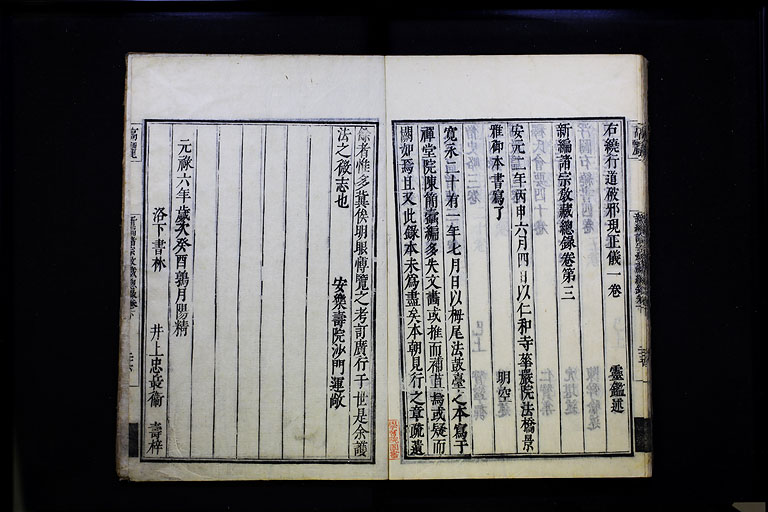 右繞行道破邪現正儀一卷 靈鑑述
新編諸宗教藏總錄卷第三
安元二年丙申六月四日以仁和寺華嚴院法橋景
雅御本書寫了 明空
寬永二十有一年七月日以栂尾法鼓臺之本寫于
禪堂院陳簡蠹編多失文蕎或推而補苴焉或疑而
闕如焉且又此錄本未為盡矣本朝見行之章疏遺
餘者惟多冀俟明眼博覽之考訂廣行于世是余護
法之微志也 安樂壽院沙門運敞
元祿六年歲次癸酉鶉月陽精
洛下書林 井上忠兵衞 壽梓